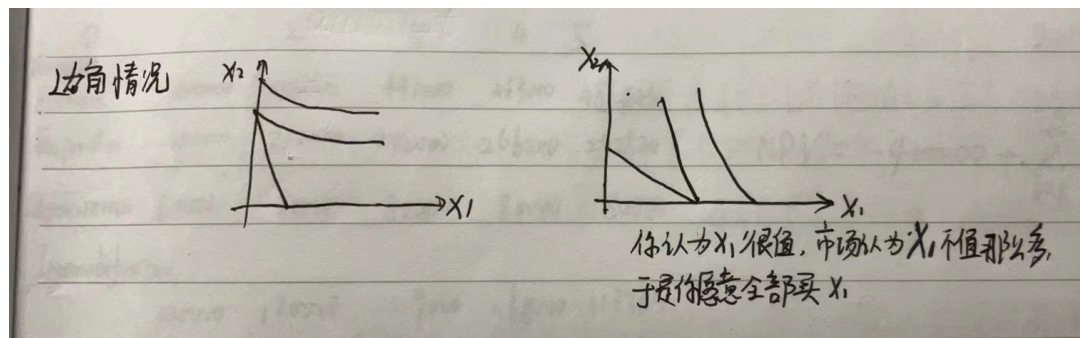 边角情况
X₂
X₁
X₂
X₁
你认为X₁很值,市场认为X₁不值那么多,
于是你愿意全部买X₁